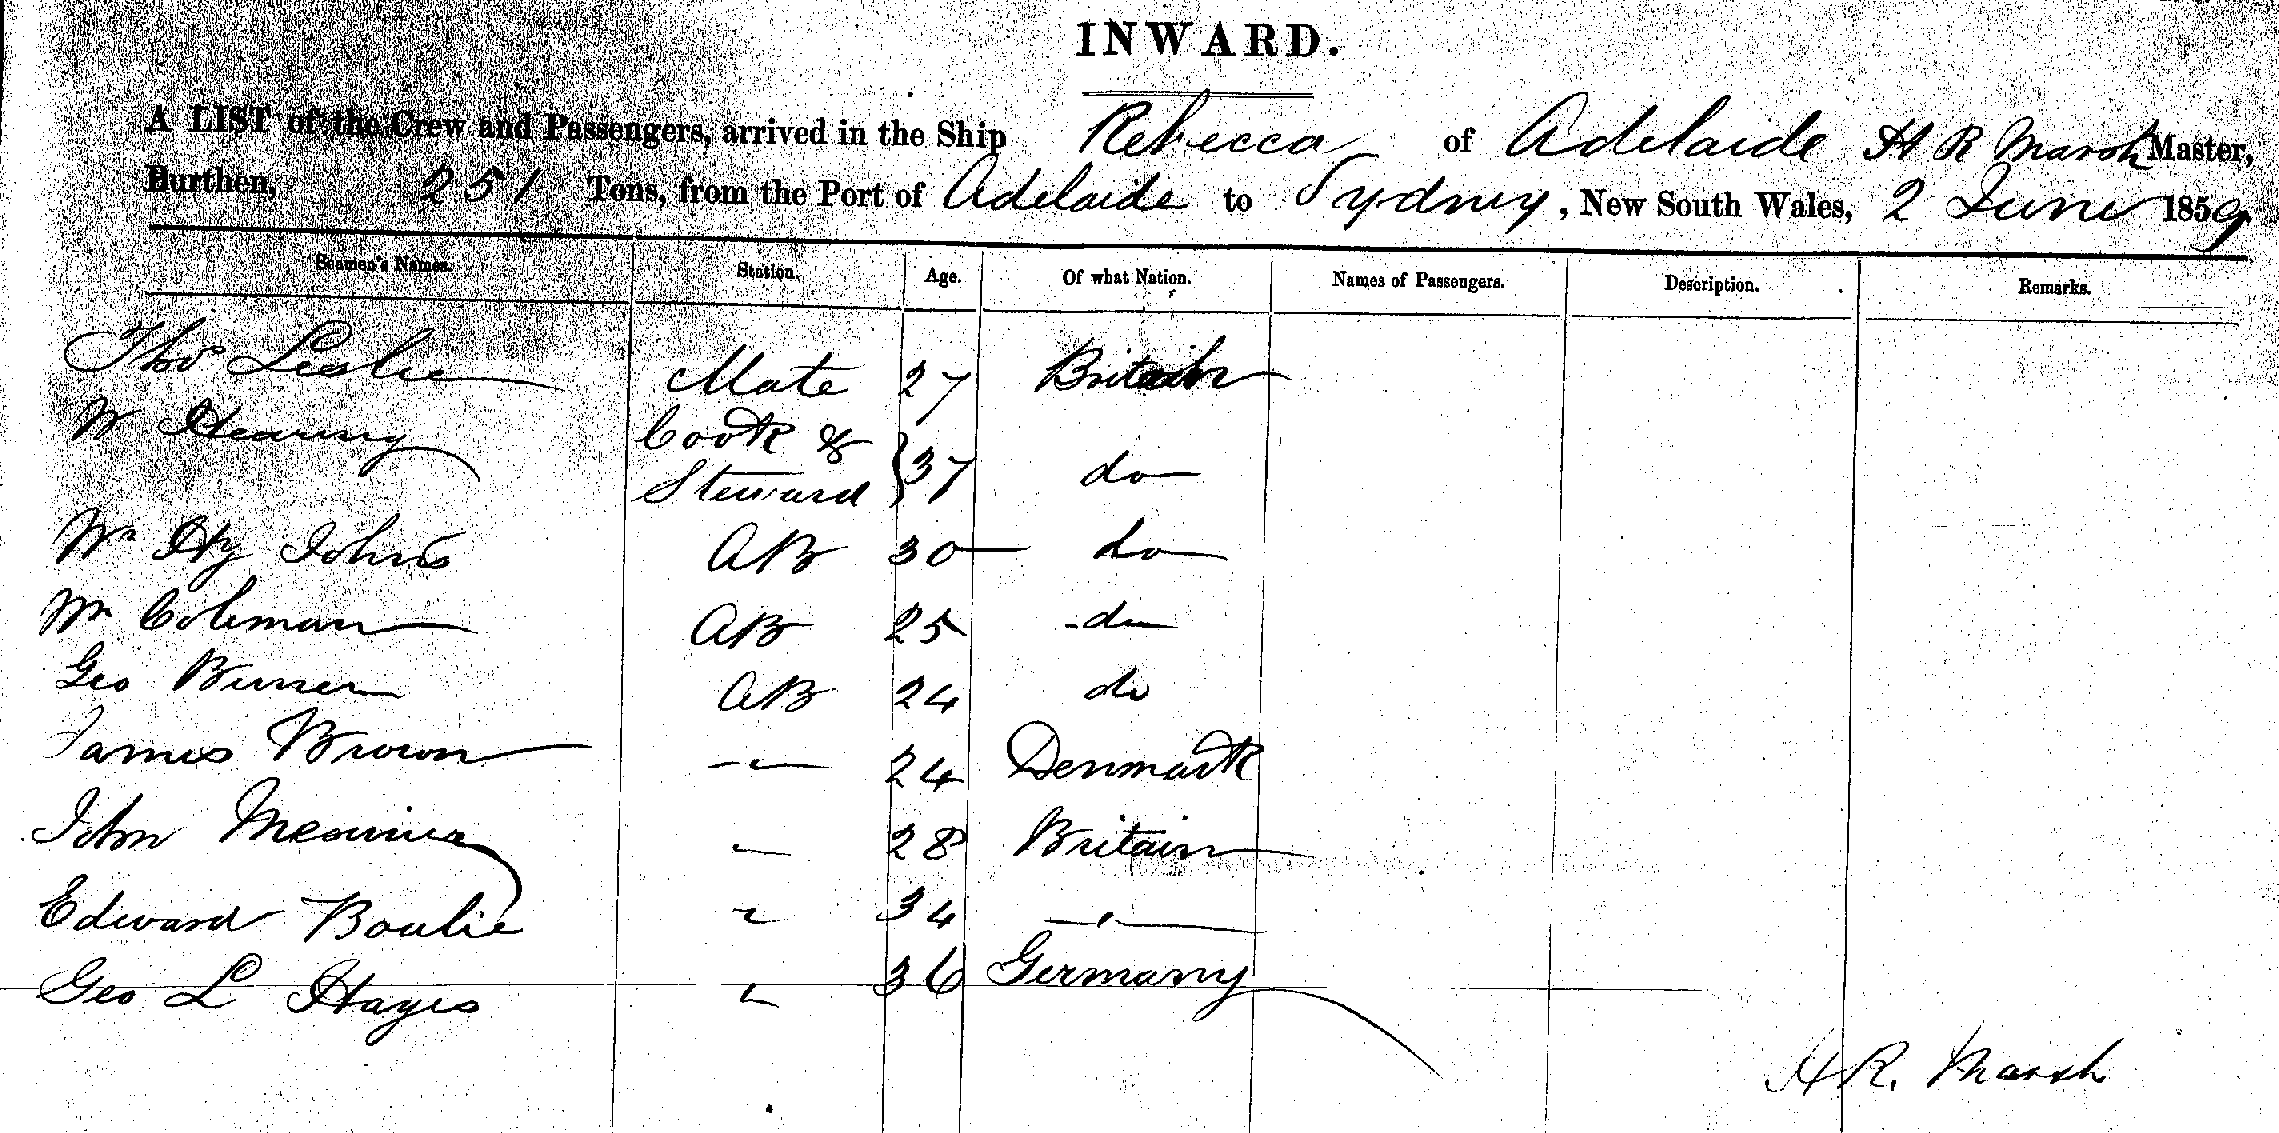 INWARD.
A LIST of the Crew and Passengers, arrived in the Ship Rebecca of Adelaide H R Marsh Master,
Burthen, 251 Tons, from the Port of Adelaide to Sydney, New South Wales, 2 June 1859
Seamen's Names. Station. Age. Of what Nation. Names of Passengers. Description. Remarks.
Thos Leslie Mate 27 Britain
W. Hearing Cook & Steward } 37 do
Wm Hy Johns AB 30 do
Wm Coleman AB 25 do
Geo AB 24 do
James Brown " 24 Denmark
John " 28 Britain
Edward " 34 "
Geo L Hayes " 36 Germany
H R. Marsh